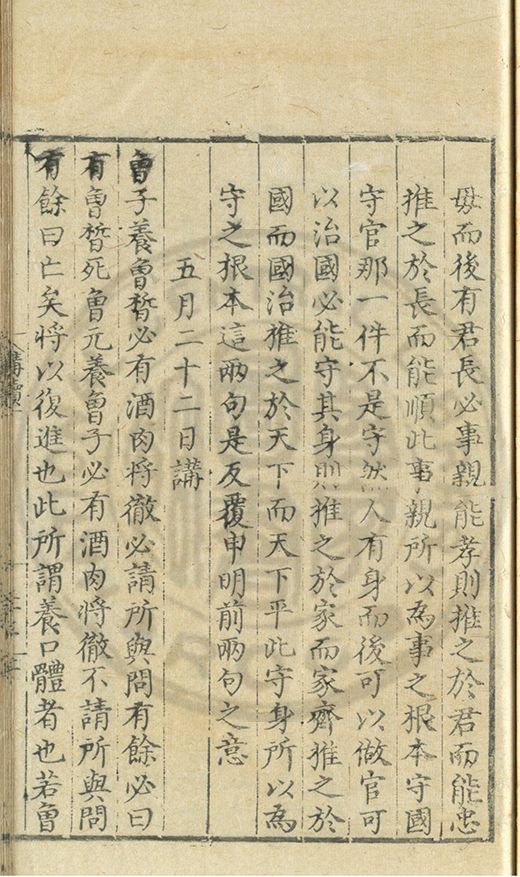 母而後有君長必事親能孝則推之於君而能忠
推之於長而能順此事親所以為事之根本守國
守官那一件不是守然人有身而後可以做官可
以治國必能守其身則推之於家而家齊推之於
國而國治推之於天下而天下平此守身所以為
守之根本這兩句是反覆申明前兩句之意
五月二十二日講
曾子養曾晳必有酒肉將徹必請所與問有餘必曰
有曾晳死曾元養曾子必有酒肉將徹不請所與問
有餘曰亡矣將以復進也此所謂養口體者也若曾